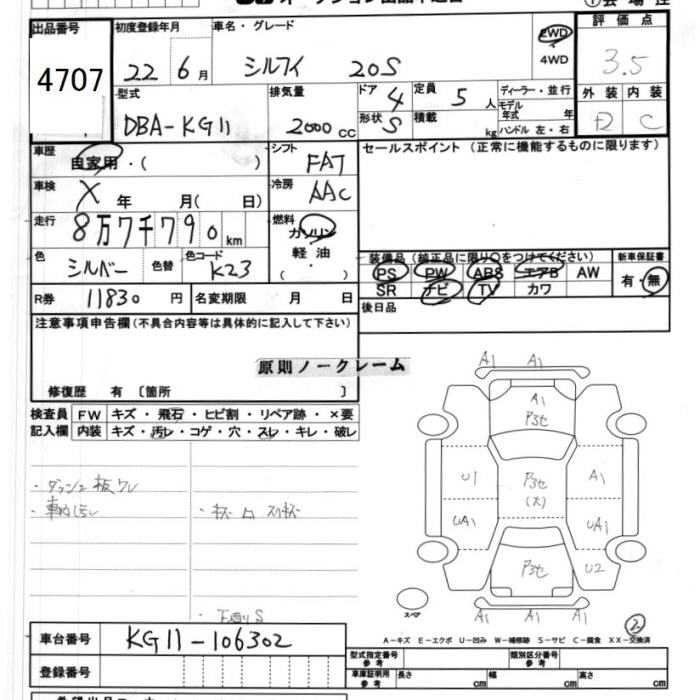 出品番号
4707
初度登録年月
22 6 月
車名・グレード
シルフィ 20S
2WD
4WD
評価点
3.5
外装 内装
D C
型式
DBA-KG11
排気量
2000 cc
ドア 4
形状 S
定員 5 人
積載 kg
ディーラー・並行
モデル年式 年
ハンドル 左・右
車歴
自家用・( )
車検
X 年 月( 日)
走行
8万7千790 km
色 シルバー 色替 色コード K23
シフト FAT
冷房 AAC
燃料
ガソリン
軽油
・( )
セールスポイント (正常に機能するものに限ります)
装備品 (純正品に限り○をつけてください)
PS PW ABS エアB AW
SR ナビ TV カワ
新車保証書
有・無
R券 11830 円 名変期限 月 日
後日品
注意事項申告欄(不具合内容等は具体的に記入して下さい)
原則ノークレーム
修復歴 有 〔箇所 〕
検査員 FW キズ・飛石・ヒビ割・リペア跡・×要
記入欄 内装 キズ・汚レ・コゲ・穴・スレ・キレ・破レ
・ダッシュ板ワレ
・キズ凹スリキズ
・下廻りS
A1 A1
A1
P3セ
U1 P3セ A1
(大)
UA1 UA1
P3セ U2
A1 A1 A1
スペア
2
A-キズ E-エクボ U-凹み W-補修跡 S-サビ C-腐食 XX-交換済
車台番号 KG11-106302
登録番号
型式指定番号 参考
類別区分番号 参考
車庫証明用 参考 長さ cm 幅 cm 高さ cm